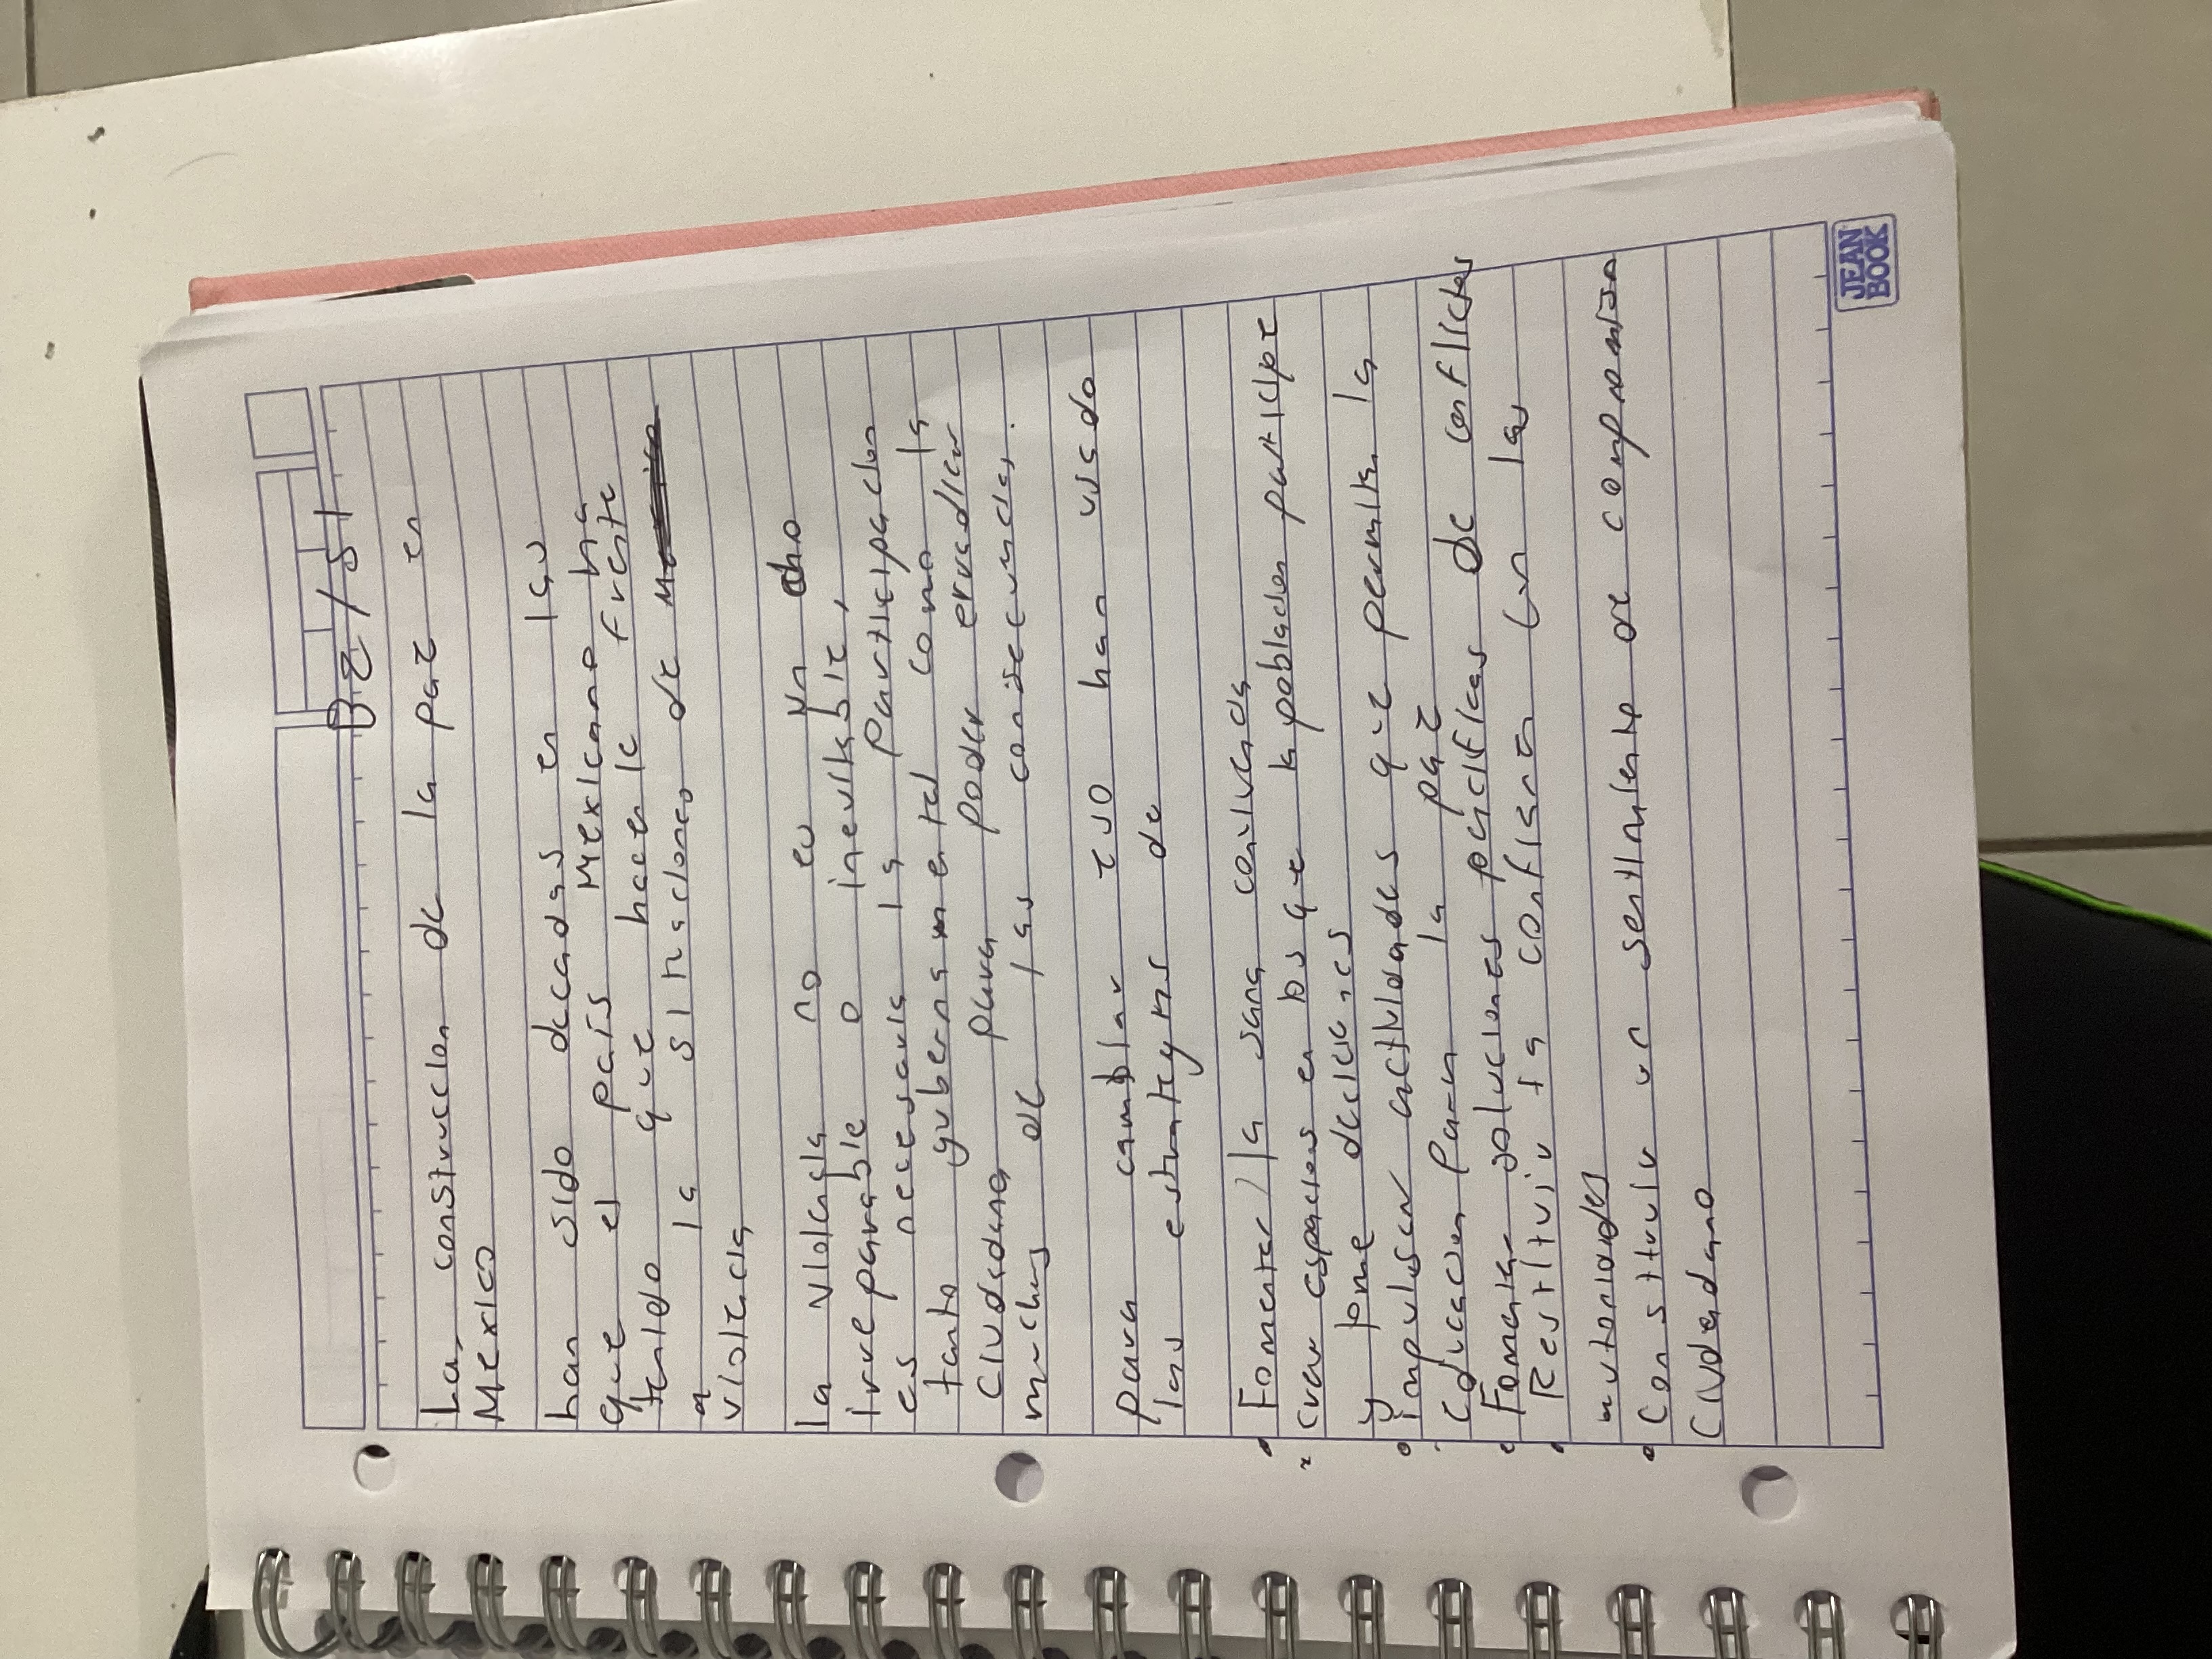 La construccion de la paz en
Mexico
han sido decadas en las
que el país Mexicano ha
tenido que hacerle frente
a la situaciones de
violencia
la violencia no es un dho
irreparable o inevitable,
es necesaria la participacion
tanto gubernamental como la
Ciudadana para poder erradicar
muchas de las consecuencias.
para cambiar eso han usado
las estrategias de
• Fomentar la sana convivencia
• crear espacios en los que la poblacion participe
y tome decisiones
• impulsar actividades que permita la
educacion para la paz
• Fomentar soluciones pacificas de conflictos
• Restituir la confianza con las
autoridades
• Constituir un sentimiento de compromiso
Ciudadano
JEAN
BOOK